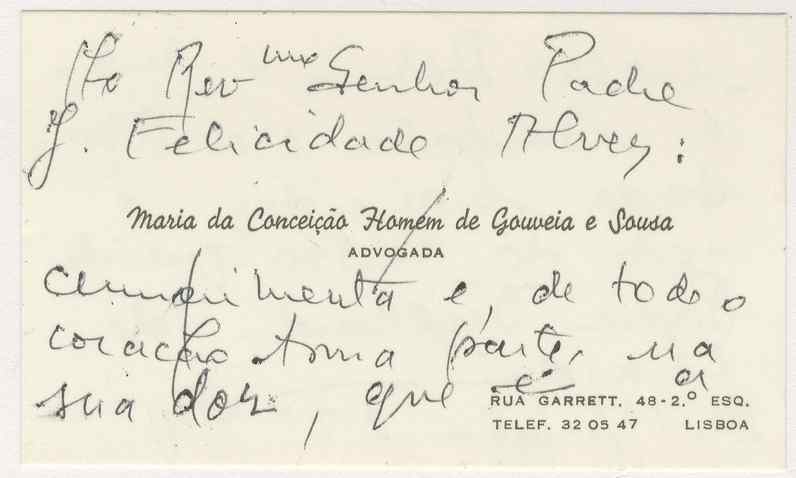 Ao Rev.mo Senhor Padre
J. Felicidade Alves:
Maria da Conceição Homem de Gouveia e Sousa
ADVOGADA
cumprimenta e, de todo o
coração toma parte, na
sua dor, que é a
RUA GARRETT, 48-2.º ESQ.
TELEF. 32 05 47 LISBOA